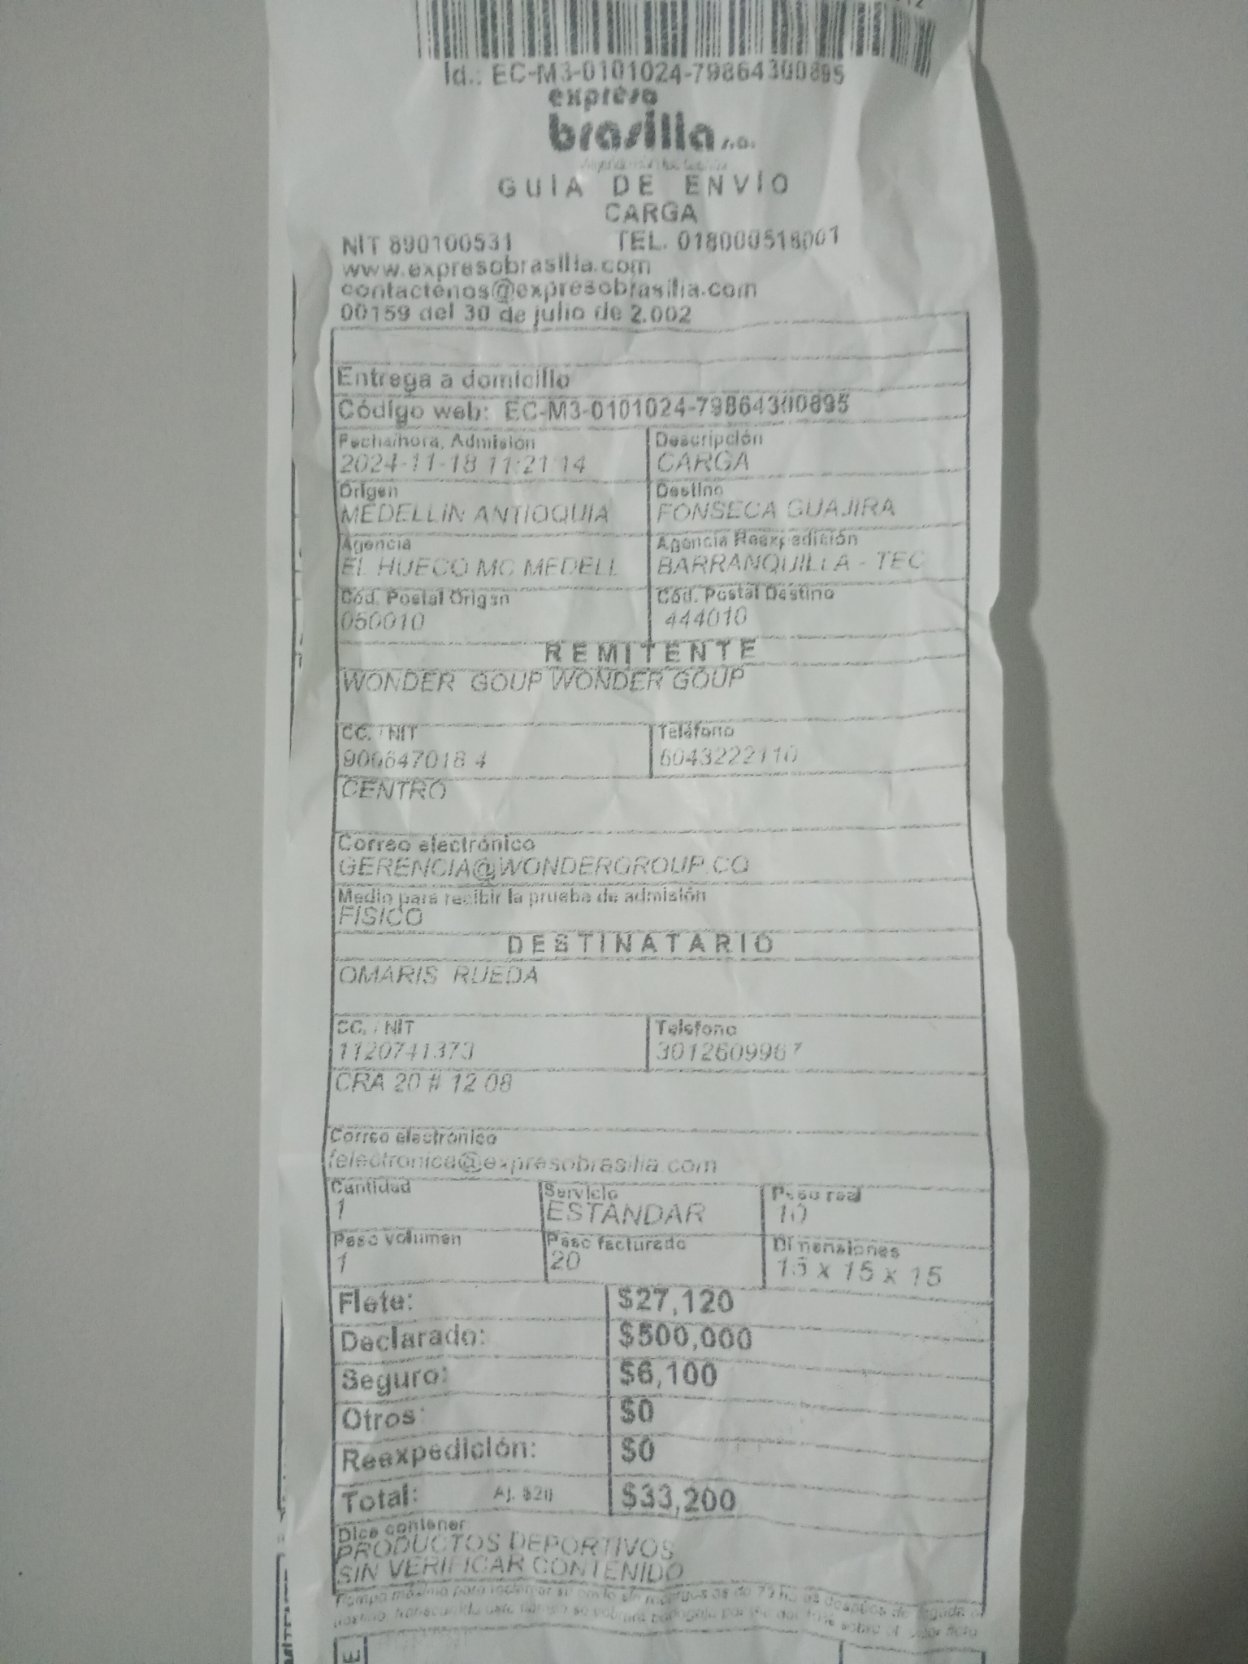 Id.: EC-M3-0101024-79864300895
expreso
brasilia s.a.
GUIA DE ENVÍO
CARGA
NIT 890100531 TEL. 018000518001
www.expresobrasilia.com
contactenos@expresobrasilia.com
00159 del 30 de julio de 2.002
Entrega a domicilio
Código web: EC-M3-0101024-79864300895
Fecha/hora, Admisión Descripción
2024-11-18 11:21:14 CARGA
Origen Destino
MEDELLIN ANTIOQUIA FONSECA GUAJIRA
Agencia Agencia Reexpedición
EL HUECO MC MEDELL BARRANQUILLA - TEC
Cód. Postal Origen Cód. Postal Destino
050010 444010
REMITENTE
WONDER GOUP WONDER GOUP
CC. / NIT Teléfono
900647018 4 6043222110
CENTRO
Correo electrónico
GERENCIA@WONDERGROUP.CO
Medio para recibir la prueba de admisión
FISICO
DESTINATARIO
OMARIS RUEDA
CC. / NIT Telefono
1120741373 3012609967
CRA 20 # 12 08
Correo electrónico
felectronica@expresobrasilia.com
Cantidad Servicio Peso real
1 ESTANDAR 10
Peso volumen Peso facturado Dimensiones
1 20 15 x 15 x 15
Flete: $27,120
Declarado: $500,000
Seguro: $6,100
Otros: $0
Reexpedición: $0
Total: Aj. $20 $33,200
Dice contener
PRODUCTOS DEPORTIVOS
SIN VERIFICAR CONTENIDO